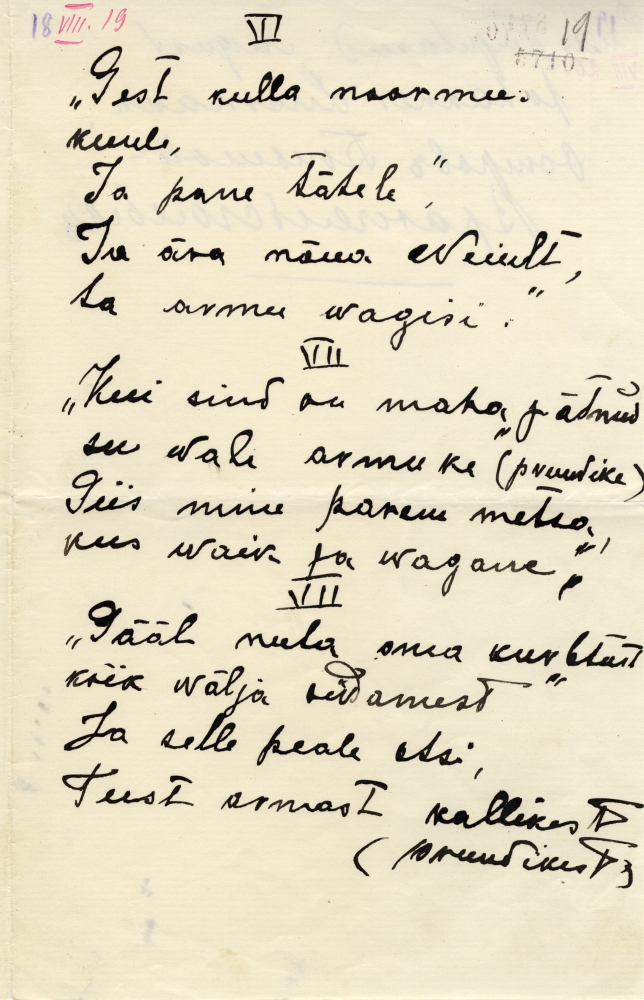 18 VIII. 19
19
VI
„Sest kulla noormu.
kuule,
Ja pane tätele,”
Ja ära nõua Neiult,
ta armu wagisi.”
VII
„Kui sind on maha jätnud
su wale armuke (pruudike)
Siis mine parem metsa,
kus waik ja wagane,”
VII
„Sääl nuta oma kurbtust
kõik wälja südamest”
Ja selle peale otsi,
Teist armast kallikest
(pruudikest)